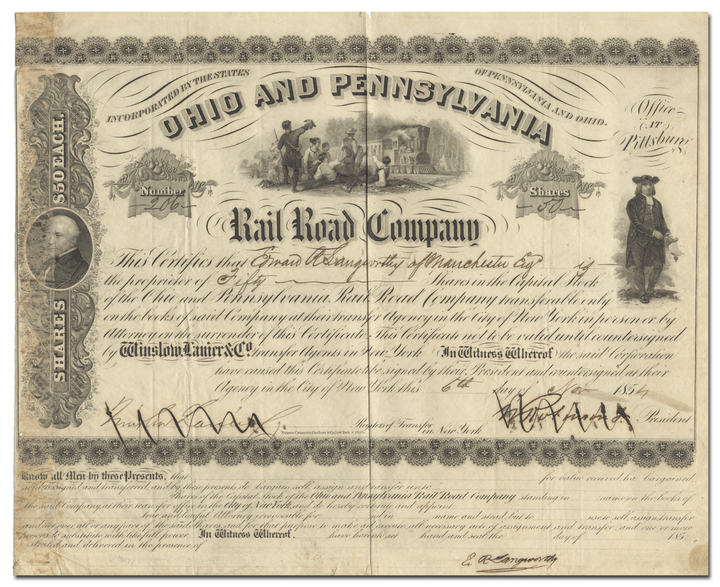 INCORPORATED BY THE STATES OF PENNSYLVANIA AND OHIO.
OHIO AND PENNSYLVANIA
Office
AT
Pittsburg
$50 EACH.
SHARES
Number
206
Shares
50
Rail Road Company
This Certifies that Edward R Langworthy of Manchester Esqr is
the proprietor of Fifty Shares in the Capital Stock
of the Ohio and Pennsylvania Rail Road Company transferable only
on the books of said Company at their transfer Agency in the City of New York in person or by
Attorney on the surrender of this Certificate. This Certificate not to be valid until countersigned
by Winslow, Lanier & Co. Transfer Agents in New York. In Witness Whereof the said Corporation
have caused this Certificate to be signed by their President and countersigned at their
Agency in the City of New York this 6th day of Nov 1854
Register of Transfer
in New York
President
Know all Men by these Presents, that for value received ha bargained
sold assigned and transferred and by these presents do bargain, sell, assign and transfer unto
Shares of the Capital Stock of the Ohio and Pennsylvania Rail Road Company standing in name on the books of
the said Company at their transfer office in the City of New York and do hereby constitute and appoint
true and lawful Attorney irrevocable for in name and stead, but to use to sell, assign, transfer
and set over all or any part of the said shares and for that purpose to make all necessary acts of assignment and transfer, and one or more
persons to substitute with like full power. In Witness Whereof, have hereunto set hand and seal the day of 185
Sealed and delivered in the presence of
E. R. Langworthy